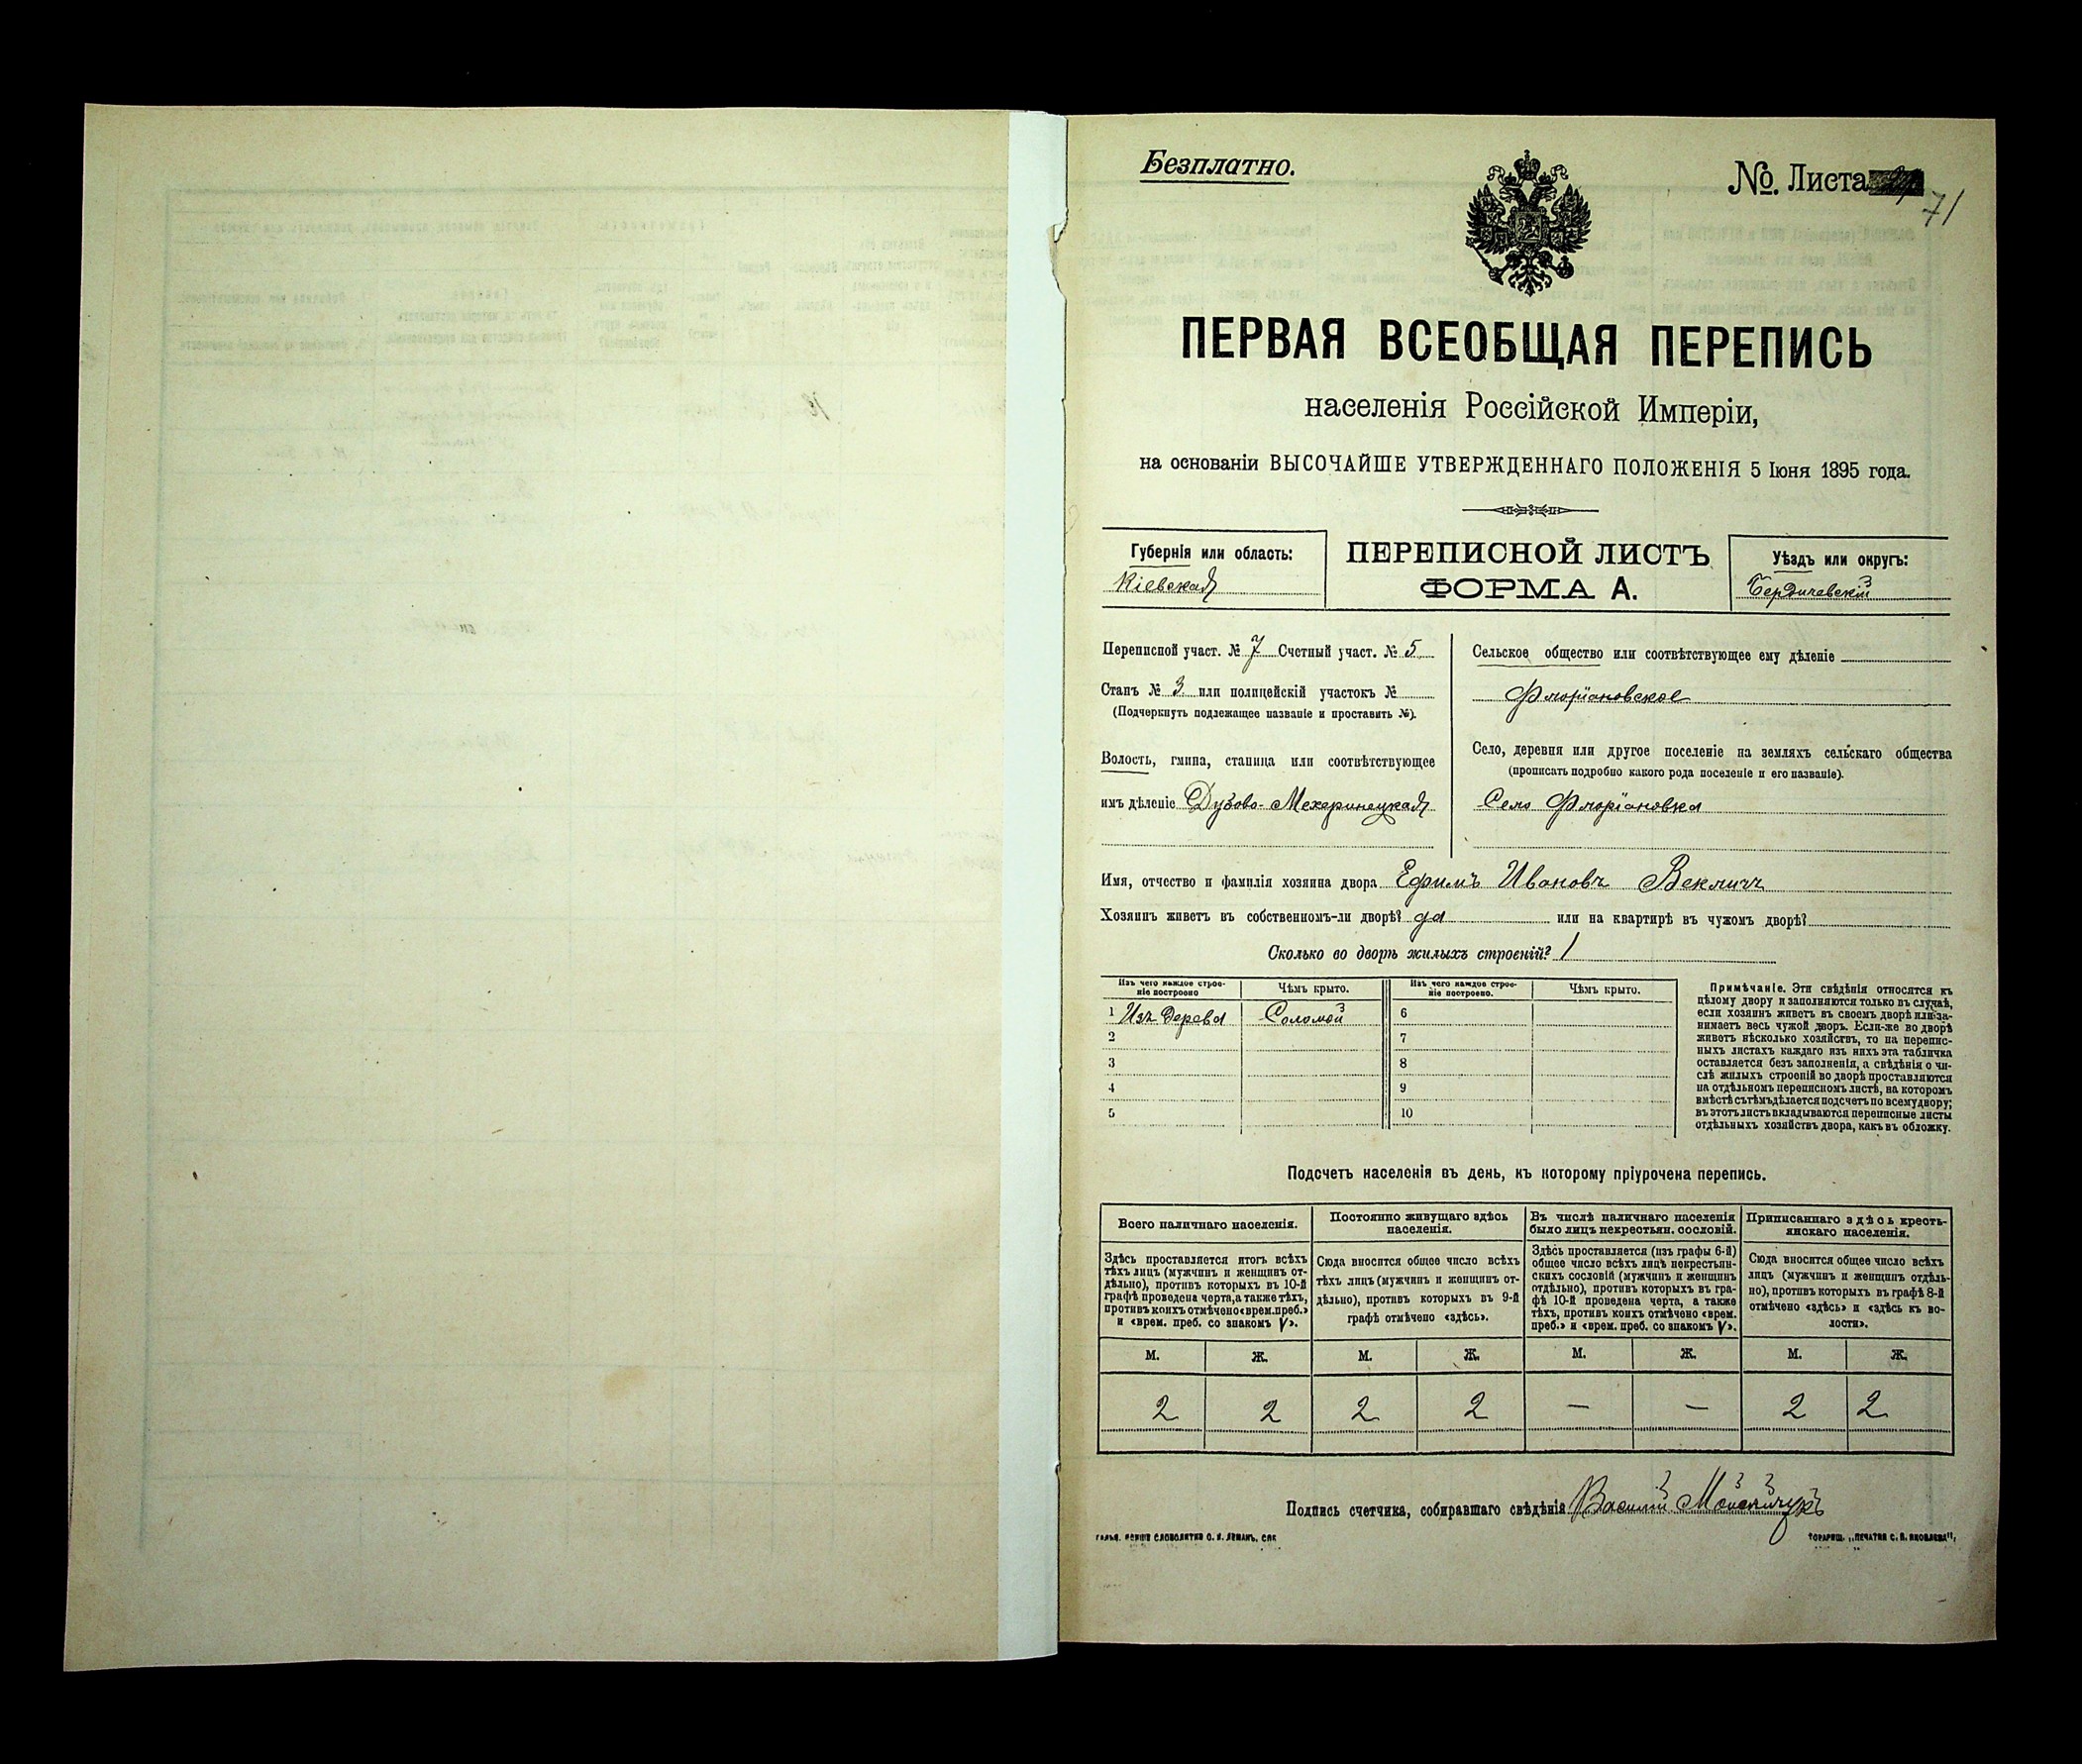 Безплатно.
№. Листа
71
ПЕРВАЯ ВСЕОБЩАЯ ПЕРЕПИСЬ
населенія Россійской Имперіи,
на основаніи ВЫСОЧАЙШЕ УТВЕРЖДЕННАГО ПОЛОЖЕНІЯ 5 Іюня 1895 года.
Губернія или область:
Кіевская
ПЕРЕПИСНОЙ ЛИСТЪ
ФОРМА А.
Уѣздъ или округъ:
Бердичевскій
Переписной участ. № 7 Счетный участ. № 5
Станъ № 3 или полицейскій участокъ №
(Подчеркнуть подлежащее названіе и проставить №).
Волость, гмина, станица или соотвѣтствующее
имъ дѣленіе Дубово-Мехеринецкая
Сельское общество или соотвѣтствующее ему дѣленіе
Флоріановское
Село, деревня или другое поселеніе на земляхъ сельскаго общества
(прописать подробно какого рода поселеніе и его названіе).
Село Флоріановка
Имя, отчество и фамилія хозяина двора Ефимъ Ивановъ Векличъ
Хозяинъ живетъ въ собственномъ-ли дворѣ? да или на квартирѣ въ чужомъ дворѣ?
Сколько во дворѣ жилыхъ строеній? 1
Изъ чего каждое строе-
ніе построено
Чѣмъ крыто.
Изъ чего каждое строе-
ніе построено.
Чѣмъ крыто.
1 Изъ дерева Соломой 6
2 7
3 8
4 9
5 10
Примѣчаніе. Эти свѣдѣнія относятся къ
цѣлому двору и заполняются только въ случаѣ,
если хозяинъ живетъ въ своемъ дворѣ или за-
нимаетъ весь чужой дворъ. Если-же во дворѣ
живетъ нѣсколько хозяйствъ, то на перепис-
ныхъ листахъ каждаго изъ нихъ эта табличка
оставляется безъ заполненія, а свѣдѣнія о чи-
слѣ жилыхъ строеній во дворѣ проставляются
на отдѣльномъ переписномъ листѣ, на которомъ
вмѣстѣ съ тѣмъ дѣлается подсчетъ по всему двору;
въ этотъ листъ вкладываются переписные листы
отдѣльныхъ хозяйствъ двора, какъ въ обложку.
Подсчетъ населенія въ день, къ которому пріурочена перепись.
Всего наличнаго населенія.
Здѣсь проставляется итогъ всѣхъ
тѣхъ лицъ (мужчинъ и женщинъ от-
дѣльно), противъ которыхъ въ 10-й
графѣ проведена черта, а также тѣхъ,
противъ коихъ отмѣчено «врем. преб.»
и «врем. преб. со знакомъ V».
Постоянно живущаго здѣсь
населенія.
Сюда вносится общее число всѣхъ
тѣхъ лицъ (мужчинъ и женщинъ от-
дѣльно), противъ которыхъ въ 9-й
графѣ отмѣчено «здѣсь».
Въ числѣ наличнаго населенія
было лицъ некрестьян. сословій.
Здѣсь проставляется (изъ графы 6-й)
общее число всѣхъ лицъ некрестьян-
скихъ сословій (мужчинъ и женщинъ
отдѣльно), противъ которыхъ въ гра-
фѣ 10-й проведена черта, а также
тѣхъ, противъ коихъ отмѣчено «врем.
преб.» и «врем. преб. со знакомъ V».
Приписаннаго здѣсь кресть-
янскаго населенія.
Сюда вносится общее число всѣхъ
лицъ (мужчинъ и женщинъ отдѣль-
но), противъ которыхъ въ графѣ 8-й
отмѣчено «здѣсь» и «здѣсь къ во-
лости».
М. Ж. М. Ж. М. Ж. М. Ж.
2 2 2 2 — — 2 2
Подпись счетчика, собиравшаго свѣдѣнія Василій